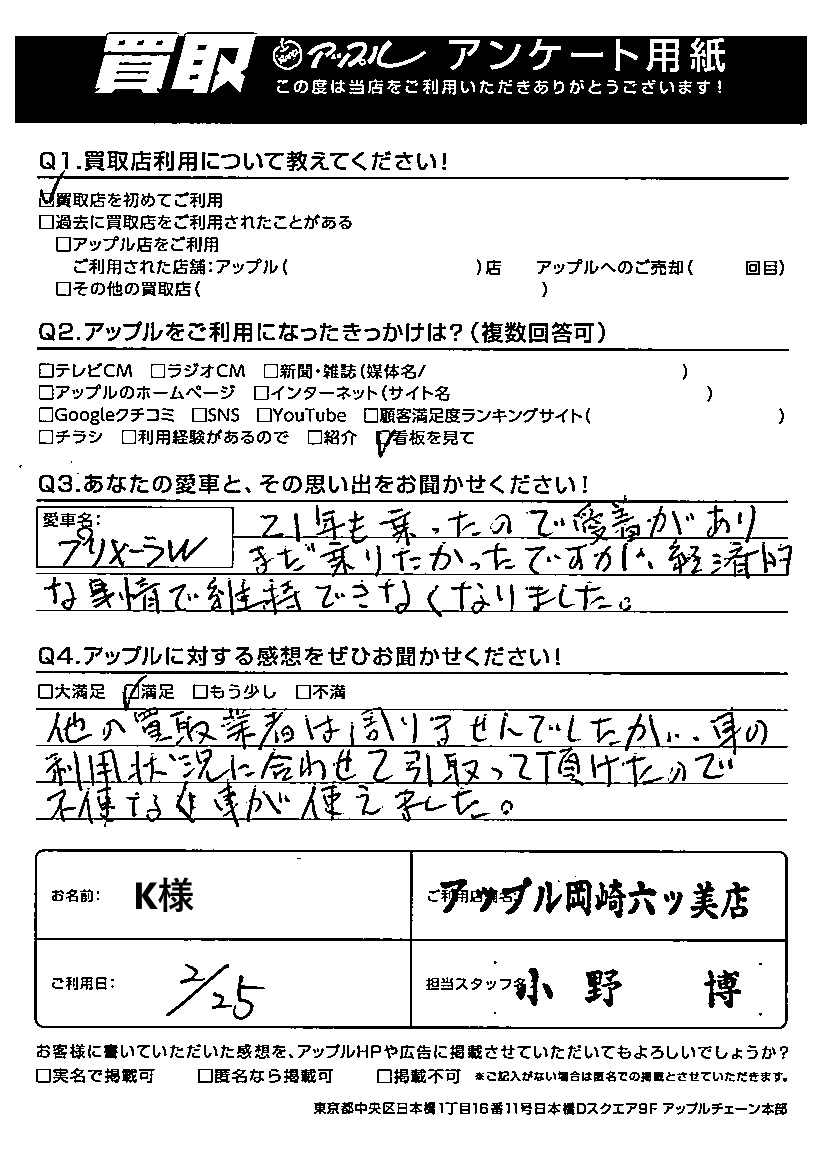 買取 アップル アンケート用紙
この度は当店をご利用いただきありがとうございます!
Q1.買取店利用について教えてください!
☑買取店を初めてご利用
□過去に買取店をご利用されたことがある
□アップル店をご利用
ご利用された店舗:アップル( )店 アップルへのご売却( 回目)
□その他の買取店( )
Q2.アップルをご利用になったきっかけは?(複数回答可)
□テレビCM □ラジオCM □新聞・雑誌(媒体名/ )
□アップルのホームページ □インターネット(サイト名 )
□Googleクチコミ □SNS □YouTube □顧客満足度ランキングサイト( )
□チラシ □利用経験があるので □紹介 ☑看板を見て
Q3.あなたの愛車と、その思い出をお聞かせください!
愛車名:
プリメーラW
21年も乗ったので愛着があり
まだ乗りたかったですが、経済的
な事情で維持できなくなりました。
Q4.アップルに対する感想をぜひお聞かせください!
□大満足 ☑満足 □もう少し □不満
他の買取業者は周りませんでしたが、車の
利用状況に合わせて引取って頂けたので
不便なく車が使えました。
お名前: K様
ご利用店舗名: アップル岡崎六ッ美店
ご利用日: 2/25
担当スタッフ名: 小野 博
お客様に書いていただいた感想を、アップルHPや広告に掲載させていただいてもよろしいでしょうか?
□実名で掲載可 □匿名なら掲載可 □掲載不可 ※ご記入がない場合は匿名での掲載とさせていただきます。
東京都中央区日本橋1丁目16番11号日本橋Dスクエア9F アップルチェーン本部